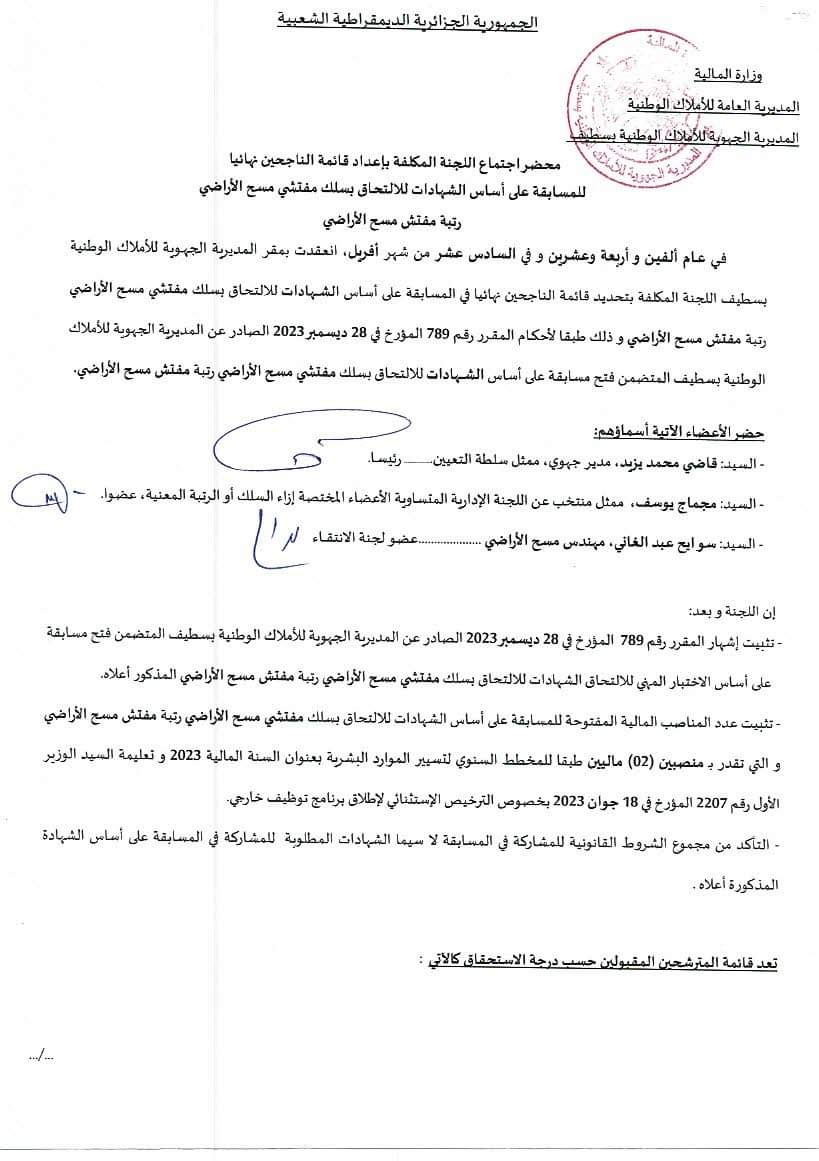 الجمهورية الجزائرية الديمقراطية الشعبية
وزارة المالية
المديرية العامة للأملاك الوطنية
المديرية الجهوية للأملاك الوطنية بسطيف
محضر اجتماع اللجنة المكلفة بإعداد قائمة الناجحين نهائيا
للمسابقة على أساس الشهادات للالتحاق بسلك مفتشي مسح الأراضي
رتبة مفتش مسح الأراضي
في عام ألفين و أربعة وعشرين و في السادس عشر من شهر أفريل، انعقدت بمقر المديرية الجهوية للأملاك الوطنية
بسطيف اللجنة المكلفة بتحديد قائمة الناجحين نهائيا في المسابقة على أساس الشهادات للالتحاق بسلك مفتشي مسح الأراضي
رتبة مفتش مسح الأراضي و ذلك طبقا لأحكام المقرر رقم 789 المؤرخ في 28 ديسمبر 2023 الصادر عن المديرية الجهوية للأملاك
الوطنية بسطيف المتضمن فتح مسابقة على أساس الشهادات للالتحاق بسلك مفتشي مسح الأراضي رتبة مفتش مسح الأراضي.
حضر الأعضاء الآتية أسماؤهم:
- السيد: قاضي محمد يزيد، مدير جهوي، ممثل سلطة التعيين.......... رئيسا.
- السيد: مجماج يوسف، ممثل منتخب عن اللجنة الإدارية المتساوية الأعضاء المختصة إزاء السلك أو الرتبة المعنية، عضوا.
- السيد: سوايح عبد الغاني، مهندس مسح الأراضي ....................عضو لجنة الانتقاء
إن اللجنة و بعد:
- تثبيت إشهار المقرر رقم 789 المؤرخ في 28 ديسمبر 2023 الصادر عن المديرية الجهوية للأملاك الوطنية بسطيف المتضمن فتح مسابقة
على أساس الاختبار المهني للالتحاق الشهادات للالتحاق بسلك مفتشي مسح الأراضي رتبة مفتش مسح الأراضي المذكور أعلاه.
- تثبيت عدد المناصب المالية المفتوحة للمسابقة على أساس الشهادات للالتحاق بسلك مفتشي مسح الأراضي رتبة مفتش مسح الأراضي
و التي تقدر بـ منصبين (02) ماليين طبقا للمخطط السنوي لتسيير الموارد البشرية بعنوان السنة المالية 2023 و تعليمة السيد الوزير
الأول رقم 2207 المؤرخ في 18 جوان 2023 بخصوص الترخيص الإستثنائي لإطلاق برنامج توظيف خارجي.
- التأكد من مجموع الشروط القانونية للمشاركة في المسابقة لا سيما الشهادات المطلوبة للمشاركة في المسابقة على أساس الشهادة
المذكورة أعلاه .
تعد قائمة المترشحين المقبولين حسب درجة الاستحقاق كالآتي :
.../...